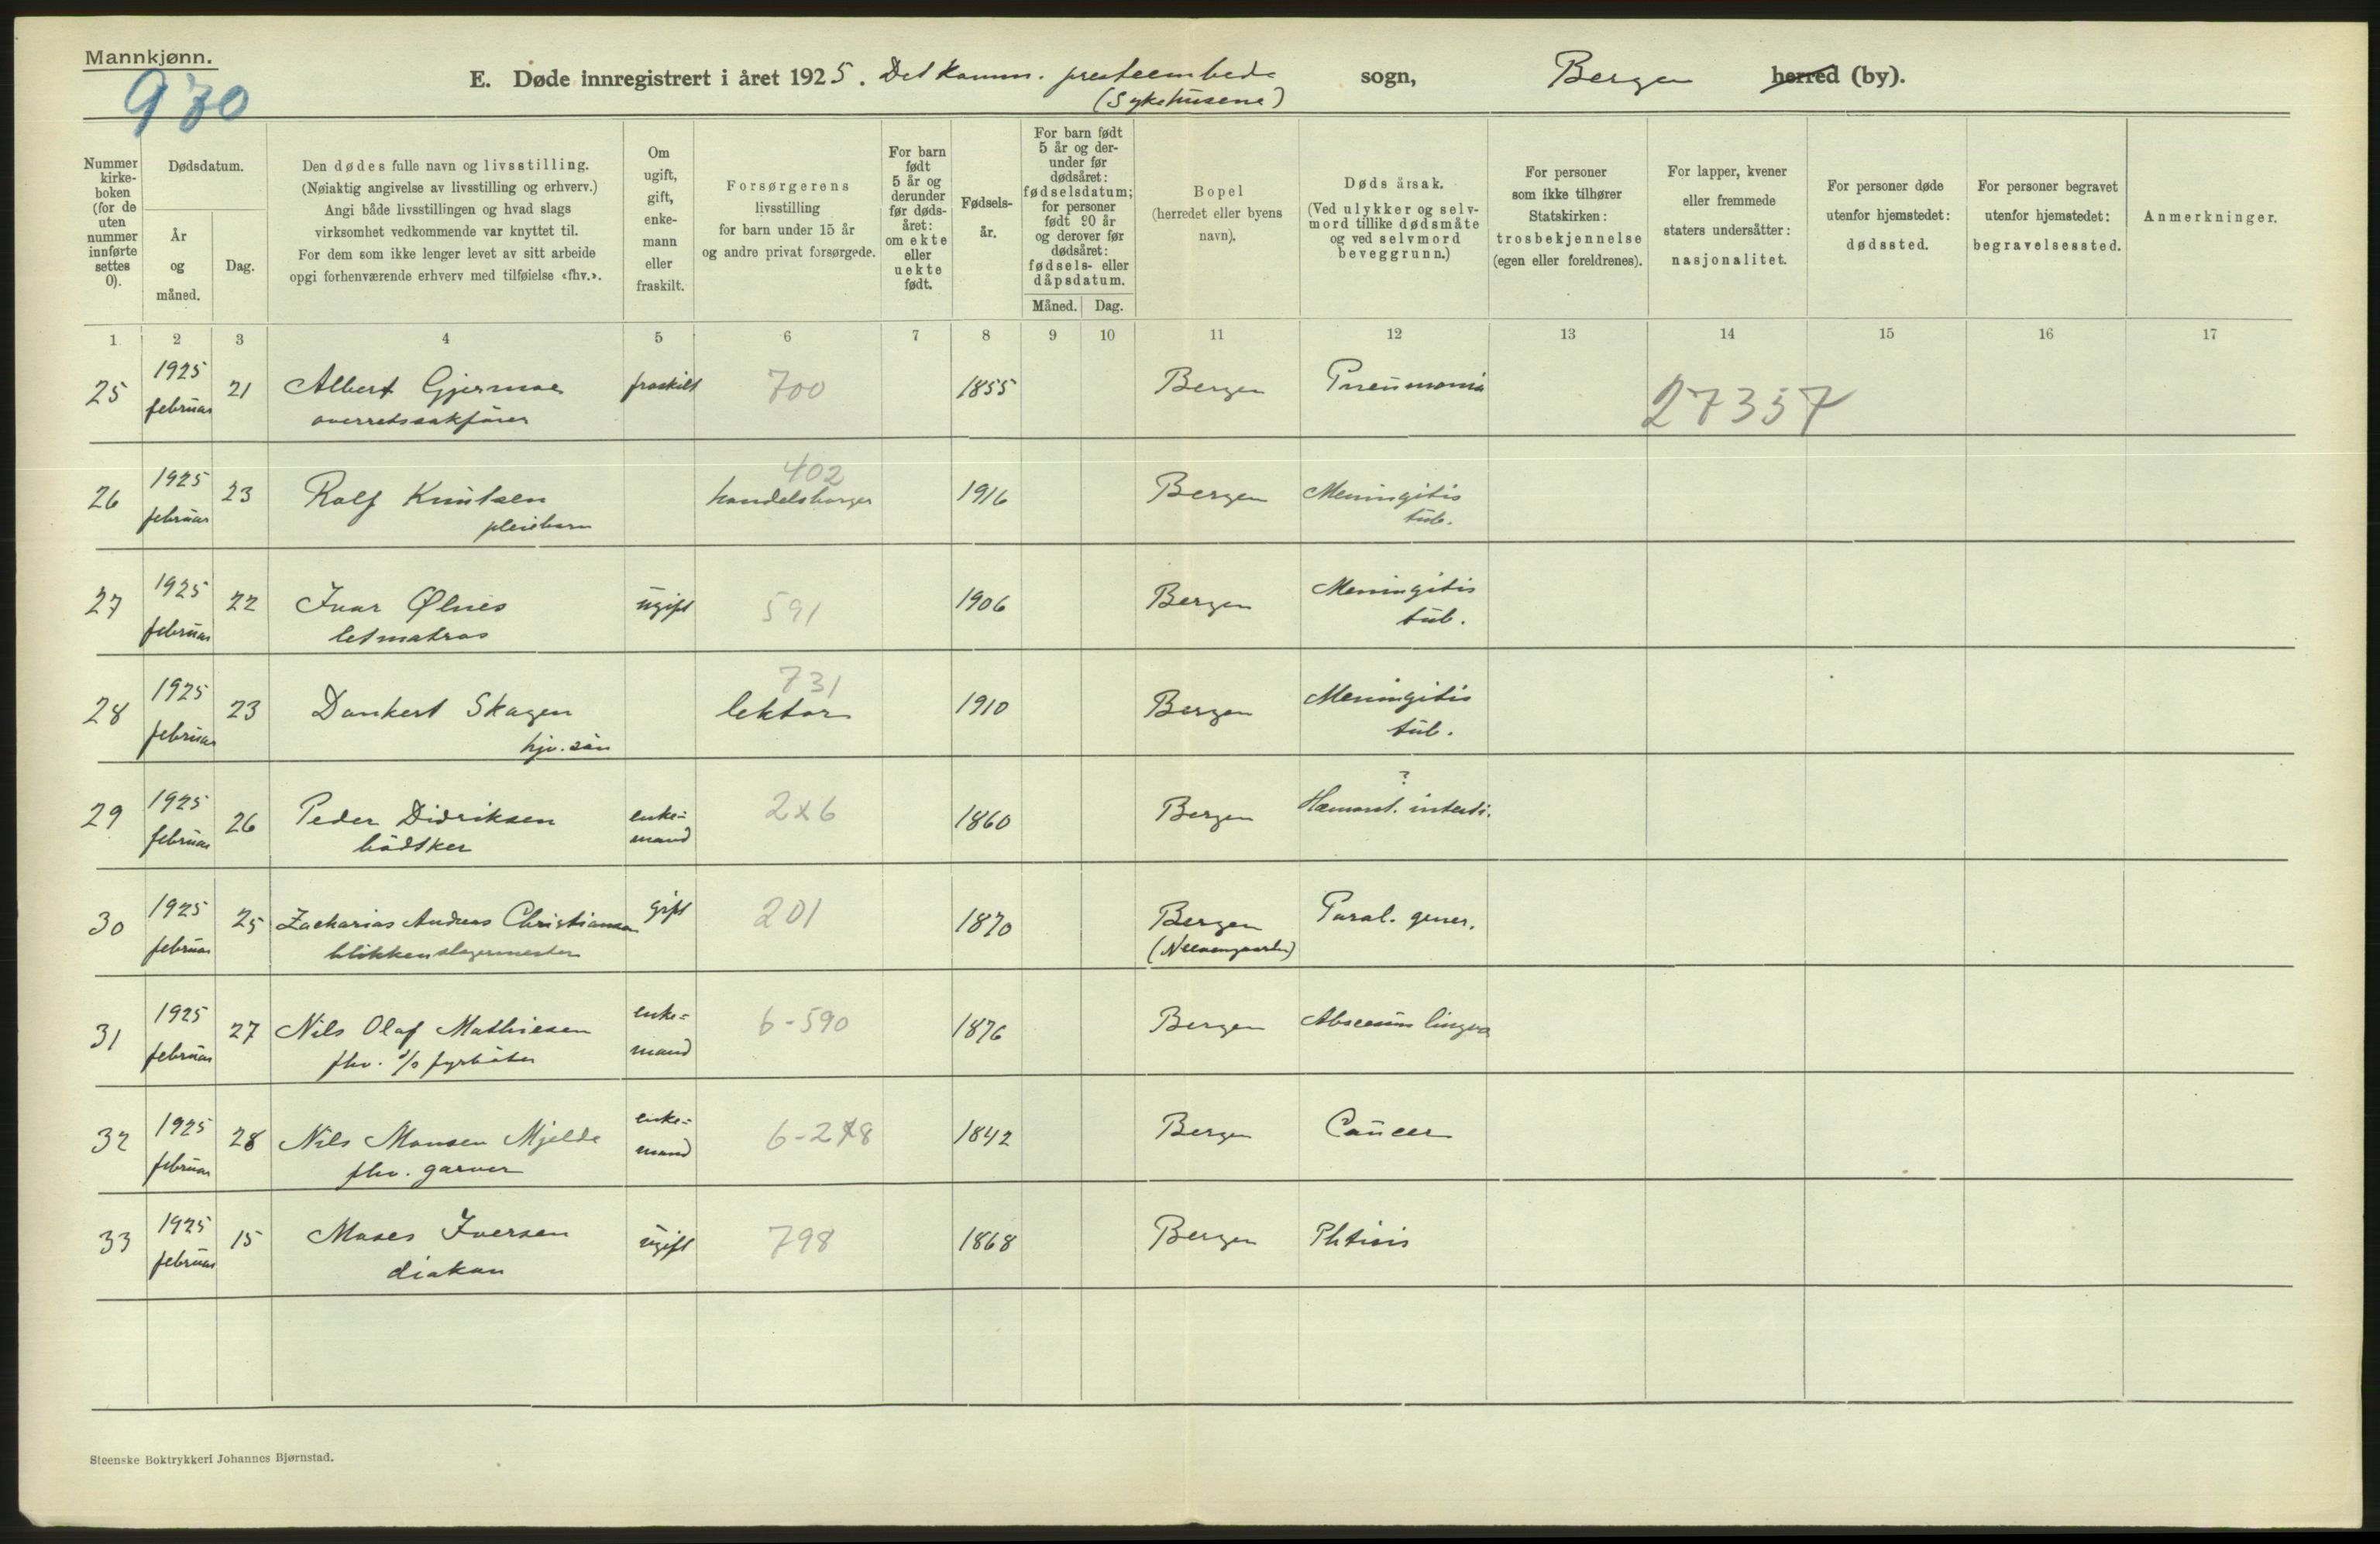 Mannkjønn.
970
E. Døde innregistrert i året 1925. Det komm. presteembede sogn, Bergen herred (by).
(Sykehusene)
Nummer kirke-boken (for de uten nummer innførte settes 0).
Dødsdatum.
År og måned.
Dag.
Den dødes fulle navn og livsstilling.
(Nøiaktig angivelse av livsstilling og erhverv.)
Angi både livsstillingen og hvad slags
virksomhet vedkommende var knyttet til.
For dem som ikke lenger levet av sitt arbeide
opgi forhenværende erhverv med tilføielse «fhv.».
Om ugift, gift, enke-mann eller fraskilt.
Forsørgerens
livsstilling
for barn under 15 år
og andre privat forsørgede.
For barn født 5 år og derunder før døds-året: om ekte eller uekte født.
Fødsels-år.
For barn født 5 år og der-under før dødsåret: fødselsdatum; for personer født 90 år og derover før dødsåret: fødsels- eller dåpsdatum.
Måned. Dag.
Bopel
(herredet eller byens navn).
Døds årsak.
(Ved ulykker og selv-mord tillike dødsmåte og ved selvmord beveggrunn.)
For personer som ikke tilhører Statskirken: trosbekjennelse (egen eller foreldrenes).
For lapper, kvener eller fremmede staters undersåtter: nasjonalitet.
For personer døde utenfor hjemstedet: dødssted.
For personer begravet utenfor hjemstedet: begravelsessted.
Anmerkninger.
1 2 3 4 5 6 7 8 9 10 11 12 13 14 15 16 17
25 1925 februar 21 Albert Gjermoe fraskilt 700 1855 Bergen Pneumonia 27357
overretssakfører
402
26 1925 februar 23 Rolf Knutsen handelsborger 1916 Bergen Meningitis tub.
pleiebarn
27 1925 februar 22 Ivar Ølnes ugift 591 1906 Bergen Meningitis tub.
letmatros
731
28 1925 februar 23 Dankert Skagen lektor 1910 Bergen Meningitis tub.
hjv. søn
?
29 1925 februar 26 Peder Didriksen enke=mand 2x6 1860 Bergen intesti.
bødtker
30 1925 februar 25 Zacharias Andreas Christiansen gift 201 1870 Bergen Paral. gener.
blikkenslagermester (Neevengaarden)
31 1925 februar 27 Nils Olaf Mathiesen enke=mand 6-590 1876 Bergen Abscessus lingva
fhv. s/s fyrbøter
32 1925 februar 28 Nils Monsen Mjelde enke=mand 6-2x8 1842 Bergen Cancer
fhv. garver
33 1925 februar 15 Moses Iversen ugift 798 1868 Bergen Phtisis
diakon
Steenske Boktrykkeri Johannes Bjørnstad.